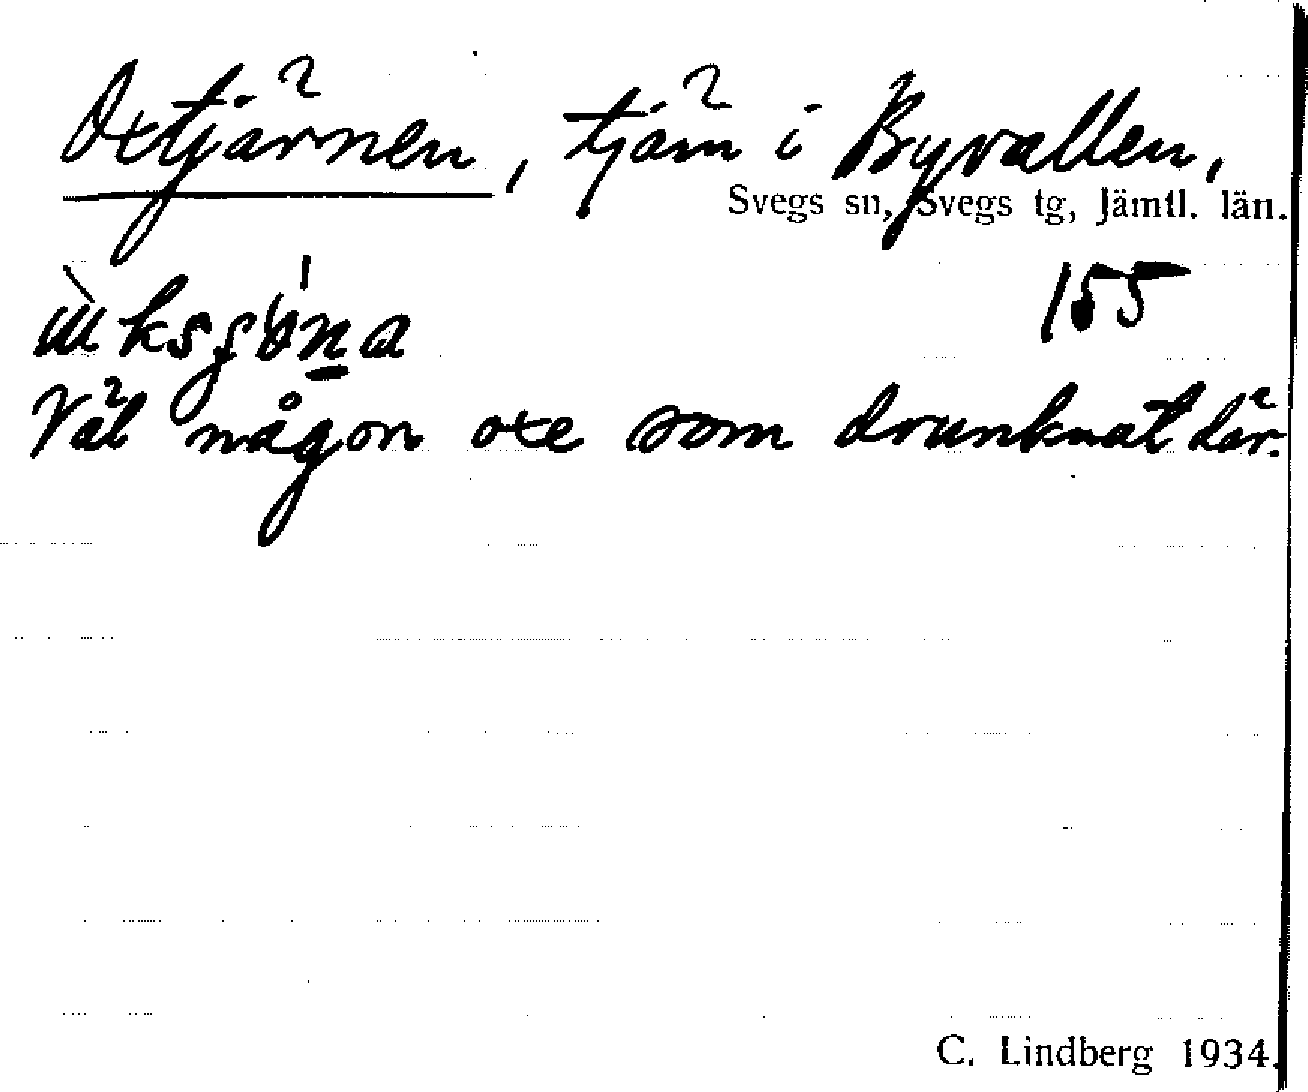 Oxtjärnen, tjärn i Byvallen,
Svegs sn, Svegs tg, Jämtl. län.
155
Väl någon oxe som drunknat där.
C. Lindberg 1934.